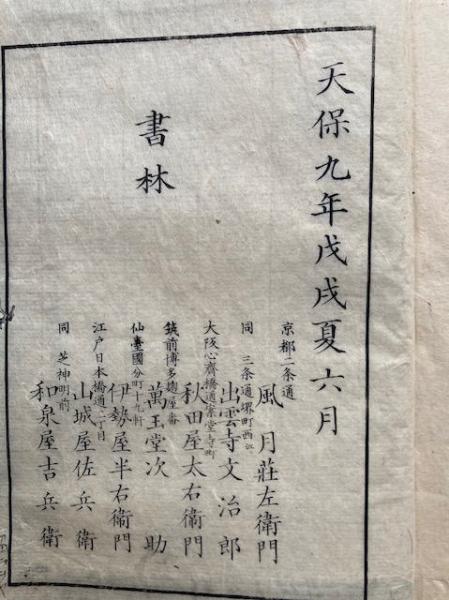 天保九年戊戌夏六月
書林
京都二条通
風月莊左衛門
同 三条通堺町西江
出雲寺文治郎
大阪心齋橋通
秋田屋太右衛門
筑前博多麹屋番
萬玉堂次助
仙臺國分町十九軒
伊勢屋半右衛門
江戸日本橋通二丁目
山城屋佐兵衛
同 芝神明前
和泉屋吉兵衛